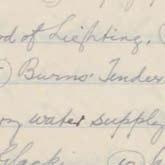 od of Lighting.
Burns' Tender
ry water supply
Glack